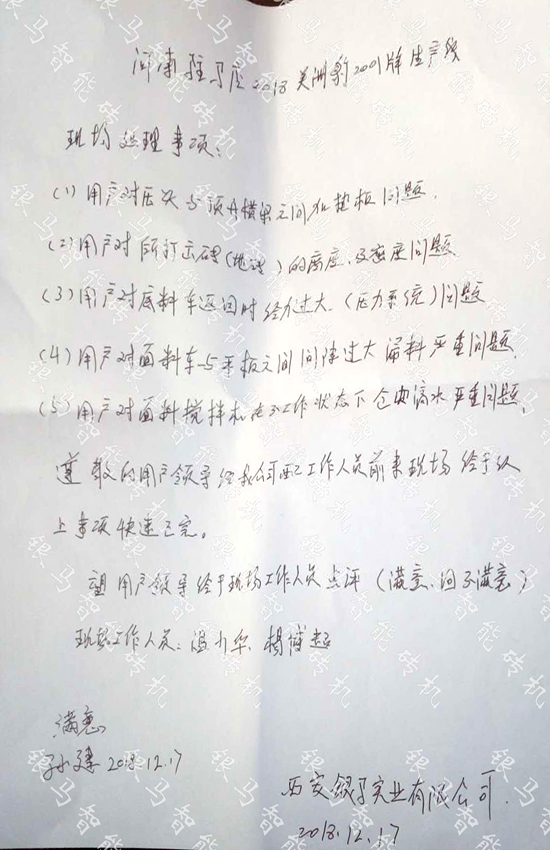 河南驻马店2018美洲豹2001牌生产线
现场处理事项:
(1) 用户对压头与顶A横梁之间加垫板问题.
(2) 用户对所打出砖(地砖)的密度、及密度问题.
(3) 用户对底料车返回时经力过大.(压力系统)问题
(4) 用户对面料车与平板之间间隙过大漏料严重问题.
(5) 用户对面料搅拌机在工作状态下仓内滴水严重问题.
尊敬的用户领导经我公司配工作人员前来现场给予以
上事项快速已完。
望用户领导给予现场工作人员点评(满意、问不满意)
现场工作人员: 温小华. 杨博超
满意
孙建 2018.12.17
西安银马实业有限公司.
2018.12.17
银马智能砖机